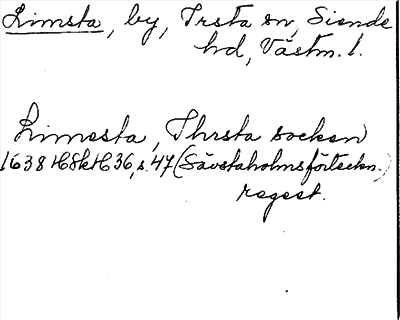 Limsta, by, Irsta sn, Siende
hd, Västm. l.
Limesta, Thrsta socken
1638 HSkH 36, s. 47 (Sävstaholmsförteckn.)
regest.